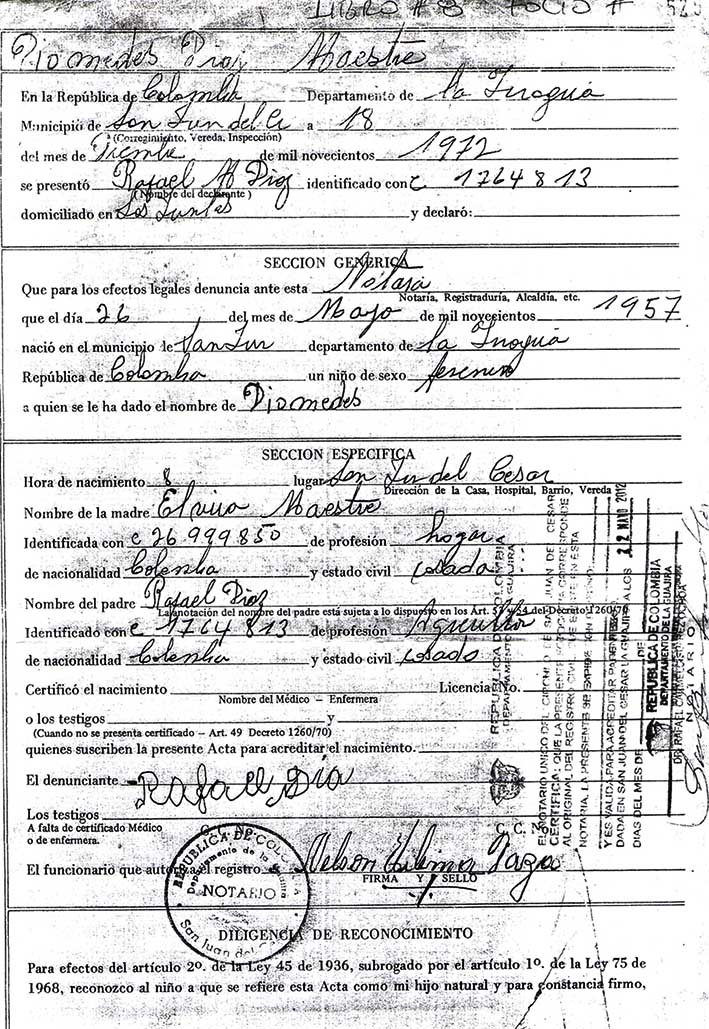 LIBRO # 8 FOLIO # 525
Diomedes Diaz Maestre
En la República de Colombia Departamento de la Guagira
Municipio de San Jun del C a 18
(Corregimiento, Vereda, Inspección)
del mes de de mil novecientos 1972
se presentó Rafael M Diaz identificado con c 1764813
(Nombre del declarante)
domiciliado en Las Juntas y declaró:
SECCION GENERICA
Que para los efectos legales denuncia ante esta Notaria
Notaría, Registraduría, Alcaldía, etc.
que el día 26 del mes de Mayo de mil novecientos 1957
nació en el municipio de San Jun departamento de la
República de Colombia un niño de sexo
a quien se le ha dado el nombre de Diomedes
SECCION ESPECIFICA
Hora de nacimiento 8 lugar San Jun del Cesar
Dirección de la Casa, Hospital, Barrio, Vereda
Nombre de la madre Elvira Maestre
Identificada con c 26.999850 de profesión hogar
de nacionalidad Colombia y estado civil casada
Nombre del padre Rafael Diaz
La anotación del nombre del padre está sujeta a lo dispuesto en los Art. 53 y 54 del Decreto 1260/70
Identificado con c 1764813 de profesión
de nacionalidad Colombia y estado civil casado
Certificó el nacimiento Licencia No.
Nombre del Médico – Enfermera
o los testigos y
(Cuando no se presenta certificado – Art. 49 Decreto 1260/70)
quienes suscriben la presente Acta para acreditar el nacimiento.
El denunciante Rafael Dia
Los testigos
A falta de certificado Médico C. C. N
o de enfermera.
El funcionario que autoriza el registro Nelson
FIRMA Y SELLO
REPUBLICA DE COLOMBIA
Departamento de la Guajira
NOTARIO
San Juan del
DILIGENCIA DE RECONOCIMIENTO
Para efectos del artículo 2º. de la Ley 45 de 1936, subrogado por el artículo 1º. de la Ley 75 de
1968, reconozco al niño a que se refiere esta Acta como mi hijo natural y para constancia firmo,
REPUBLICA DE COLOMBIA
DEPARTAMENTO DE LA GUAJIRA
EL NOTARIO UNICO DEL CIRCULO DE SAN JUAN DE CESAR
CERTIFICA: QUE LA PRESENTE CORRESPONDE
AL ORIGINAL DEL REGISTRO CIVIL QUE EN ESTA
NOTARIA, LA PRESENTE SE EXPIDE
Y ES VALIDA PARA ACREDITAR
DADA EN SAN JUAN DEL CESAR LA GUAJIRA, A LOS 22 MAYO 2012
DIAS DEL MES DE
REPUBLICA DE COLOMBIA
DEPARTAMENTO DE LA GUAJIRA
NOTARIO